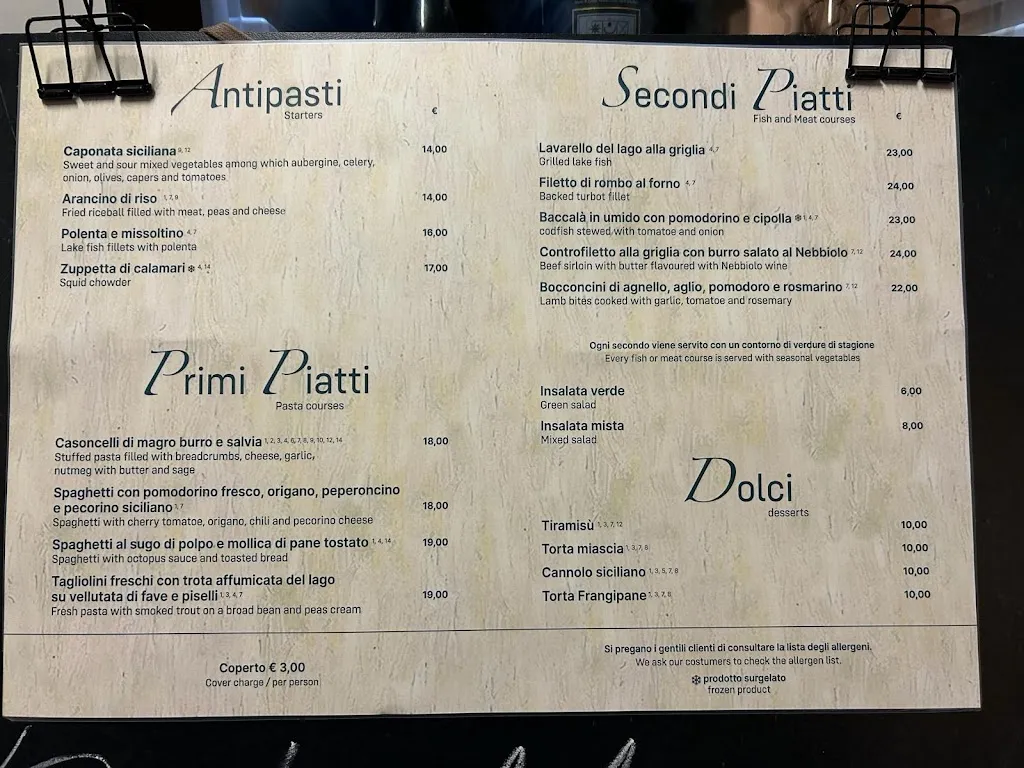 Antipasti
Starters
€
Caponata siciliana 9, 12
14,00
Sweet and sour mixed vegetables among which aubergine, celery,
onion, olives, capers and tomatoes
Arancino di riso 1, 7, 9
14,00
Fried riceball filled with meat, peas and cheese
Polenta e missoltino 4, 7
16,00
Lake fish fillets with polenta
Zuppetta di calamari ❄ 4, 14
17,00
Squid chowder
Primi Piatti
Pasta courses
Casoncelli di magro burro e salvia 1, 2, 3, 4, 6, 7, 8, 9, 10, 12, 14
18,00
Stuffed pasta filled with breadcrumbs, cheese, garlic,
nutmeg with butter and sage
Spaghetti con pomodorino fresco, origano, peperoncino
e pecorino siciliano 1, 7
18,00
Spaghetti with cherry tomatoe, origano, chili and pecorino cheese
Spaghetti al sugo di polpo e mollica di pane tostato 1, 4, 14
19,00
Spaghetti with octopus sauce and toasted bread
Tagliolini freschi con trota affumicata del lago
su vellutata di fave e piselli 1, 3, 4, 7
19,00
Fresh pasta with smoked trout on a broad bean and peas cream
Coperto € 3,00
Cover charge / per person
Secondi Piatti
Fish and Meat courses
€
Lavarello del lago alla griglia 4, 7
23,00
Grilled lake fish
Filetto di rombo al forno 4, 7
24,00
Backed turbot fillet
Baccalà in umido con pomodorino e cipolla ❄ 1, 4, 7
23,00
codfish stewed with tomatoe and onion
Controfiletto alla griglia con burro salato al Nebbiolo 7, 12
24,00
Beef sirloin with butter flavoured with Nebbiolo wine
Bocconcini di agnello, aglio, pomodoro e rosmarino 7, 12
22,00
Lamb bites cooked with garlic, tomatoe and rosemary
Ogni secondo viene servito con un contorno di verdure di stagione
Every fish or meat course is served with seasonal vegetables
Insalata verde
6,00
Green salad
Insalata mista
8,00
Mixed salad
Dolci
desserts
Tiramisù 1, 3, 7, 12
10,00
Torta miascia 1, 3, 7, 8
10,00
Cannolo siciliano 1, 3, 5, 7, 8
10,00
Torta Frangipane 1, 3, 7, 8
10,00
Si pregano i gentili clienti di consultare la lista degli allergeni.
We ask our costumers to check the allergen list.
❄ prodotto surgelato
frozen product